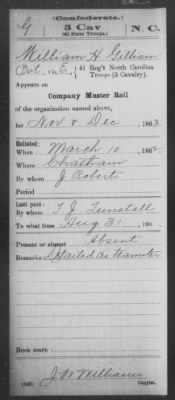 G
(Confederate.)
3 Cav.
(41 State Troops.)
N. C.
William H Gilham
Pvt, Co. E, 41 Reg't North Carolina
Troops (3 Cavalry).
Appears on
Company Muster Roll
of the organization named above,
for Nov & Dec, 1863.
Enlisted:
When March 10, 1862
Where Chatham
By whom J Roberts
Period
Last paid:
By whom T. J. Tunstall
To what time Aug 31, 186
Present or absent Absent
Remarks: Detailed as Teamster
Book mark:
J W Williams
Copyist.